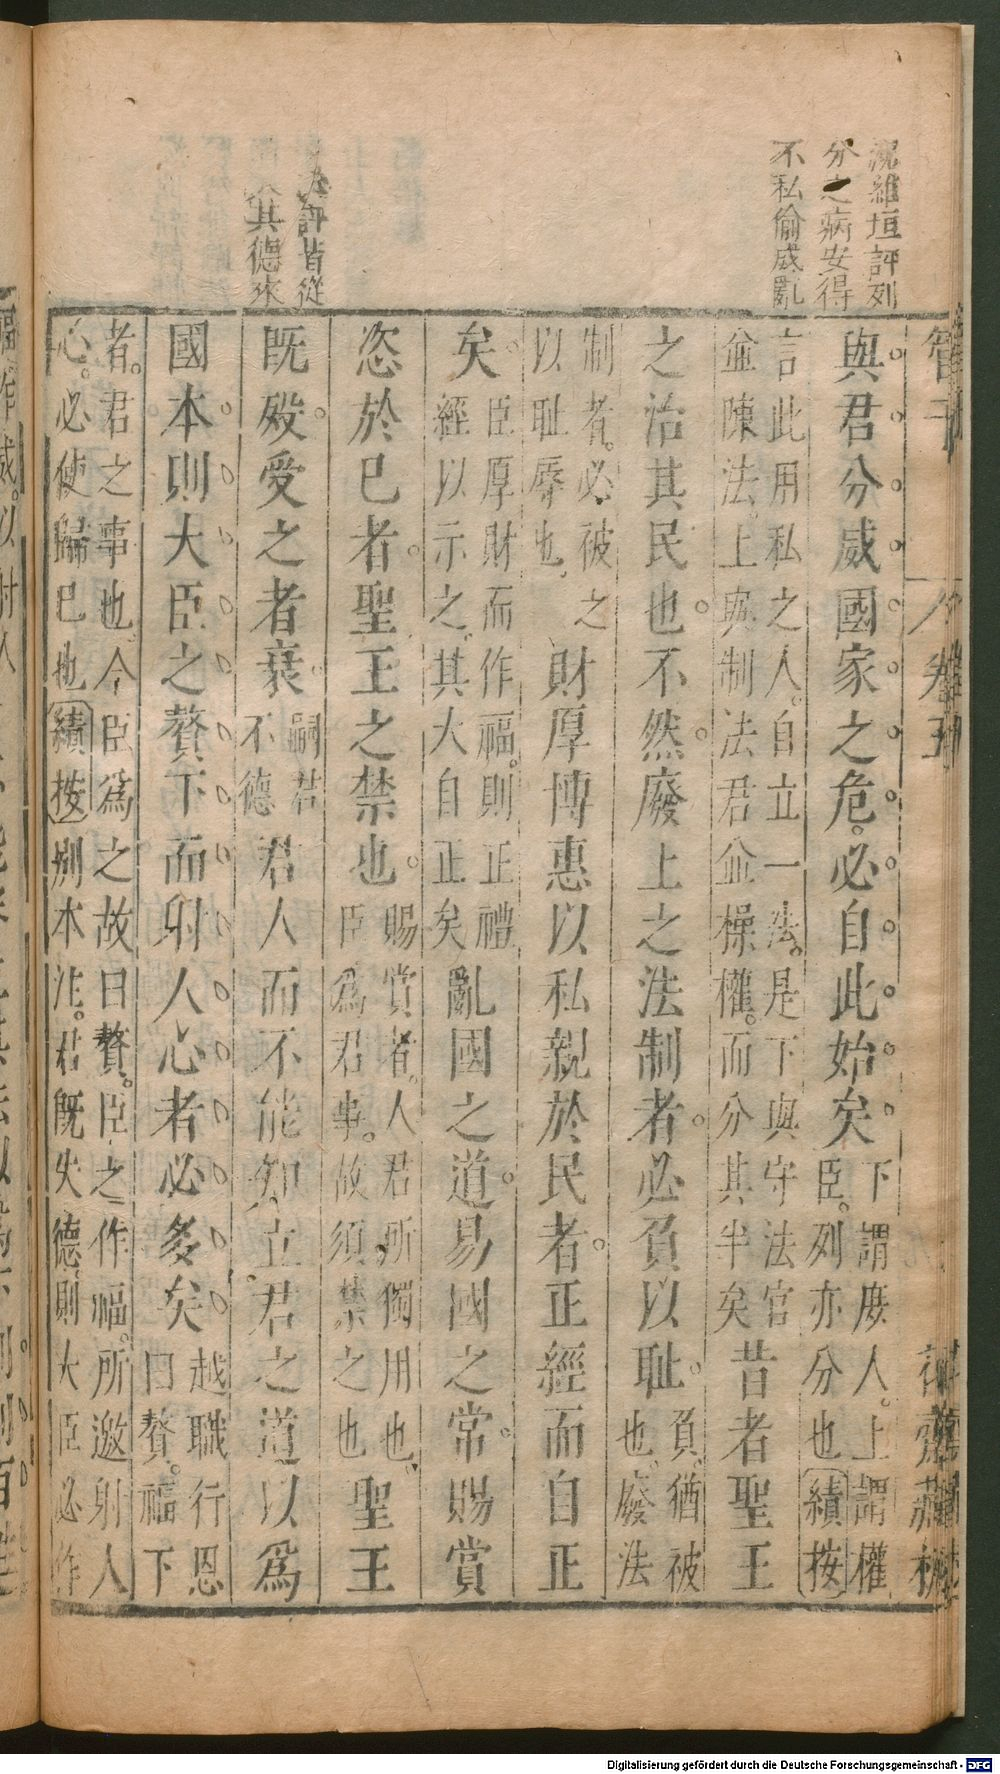 沈維垣評列
分之病安得
不私偷威亂
評皆從
其德來
管子
與君分威國家之危必自此始矣下謂庶人上謂權
臣列亦分也績按
言此用私之人自立一法是下與守法官
並陳法上與制法君並操權而分其半矣昔者聖王
之治其民也不然廢上之法制者必負以恥負猶被
也廢法
制者必被之
以恥辱也財厚博惠以私親於民者正經而自正
矣臣厚財而作福則正禮
經以示之其大自正矣亂國之道易國之常賜賞
恣於已者聖王之禁也賜賞者人君所獨用也
臣為君事故須禁之也聖王
既殁受之者衰嗣君
不德君人而不能知立君之道以為
國本則大臣之贅下而射人心者必多矣越職行恩
曰贅福下
者君之事也今臣為之故曰贅臣之作福所邀射人
心必使歸已也績按別本注君既失德則大臣必作
Digitalisierung gefördert durch die Deutsche Forschungsgemeinschaft - DFG